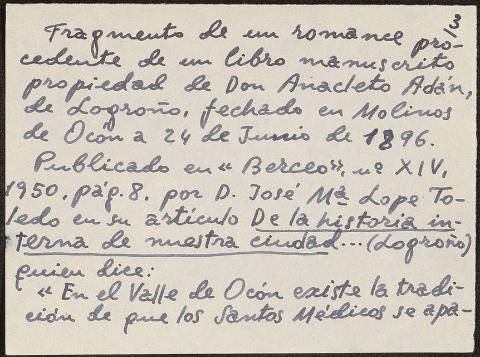 3
Fragmento de un romance pro-
cedente de un libro manuscrito
propiedad de Don Anacleto Adán,
de Logroño, fechado en Molinos
de Ocón a 24 de Junio de 1896.
Publicado en "Berceo", nº XIV,
1950, pág. 8, por D. José Mª Lope To-
ledo en su artículo De la historia in-
terna de nuestra ciudad... (Logroño)
quien dice:
"En el Valle de Ocón existe la tradi-
ción de que los Santos Médicos se apa-